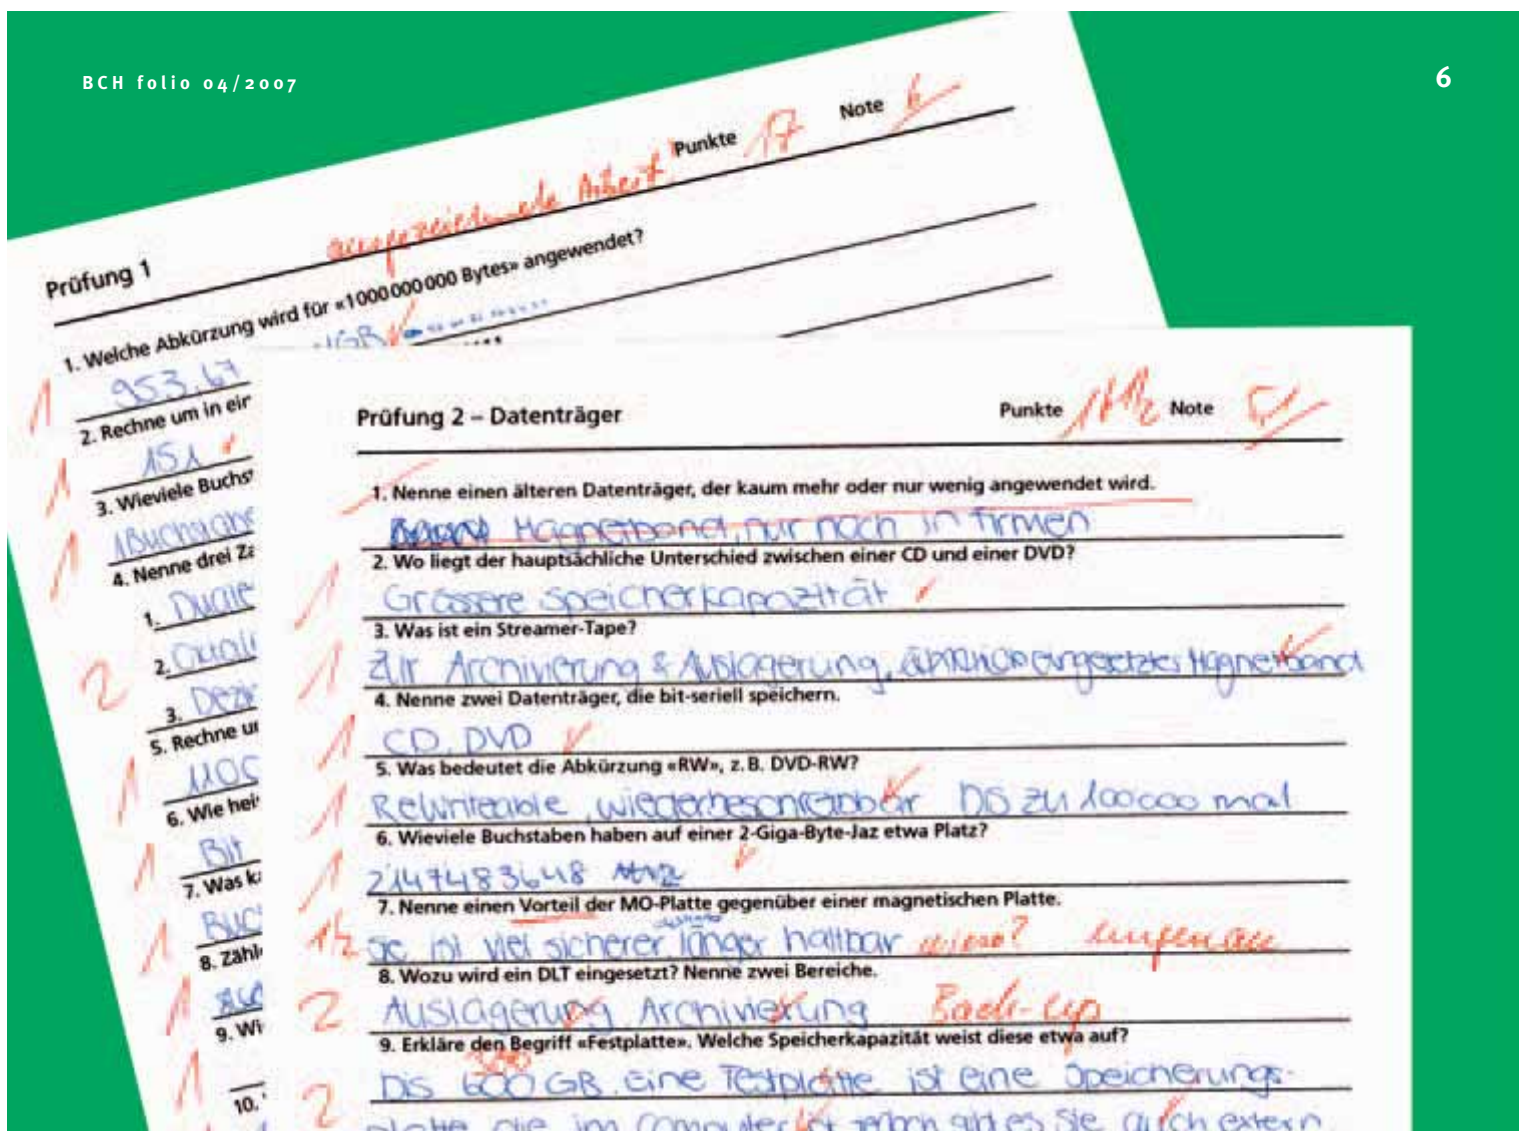 BCH folio 04/2007
6
Punkte 17 Note 6
ausgezeichnete Arbeit
Prüfung 1
1. Welche Abkürzung wird für «1 000 000 000 Bytes» angewendet?
GB
1 953.67
2. Rechne um in ein
1 151
3. Wieviele Buchst
1 1Buchstabe
4. Nenne drei Za
1. Duale
2.
2
3. Dezi
5. Rechne um
1 1100
6. Wie hei
1 Bit
7. Was ka
1 BUC
8. Zähl
1
9. Wi
1
10.
Prüfung 2 – Datenträger
Punkte 11½ Note 5
1. Nenne einen älteren Datenträger, der kaum mehr oder nur wenig angewendet wird.
Magnetband, nur noch in Firmen
2. Wo liegt der hauptsächliche Unterschied zwischen einer CD und einer DVD?
1 Grössere Speicherkapazität
3. Was ist ein Streamer-Tape?
1 Zur Archivierung & Auslagerung, ähnlich eingesetztes Magnetband
4. Nenne zwei Datenträger, die bit-seriell speichern.
1 CD, DVD
5. Was bedeutet die Abkürzung «RW», z. B. DVD-RW?
1 ReWriteable, wiederbeschreibbar bis zu 100000 mal
6. Wieviele Buchstaben haben auf einer 2-Giga-Byte-Jaz etwa Platz?
1 2147483648
7. Nenne einen Vorteil der MO-Platte gegenüber einer magnetischen Platte.
½ Sie ist viel sicherer länger haltbar wieso? ungenau
8. Wozu wird ein DLT eingesetzt? Nenne zwei Bereiche.
2 Auslagerung Archivierung Back-up
9. Erkläre den Begriff «Festplatte». Welche Speicherkapazität weist diese etwa auf?
Bis 600 GB. Eine Festplatte ist eine Speicherungs-
2 platte die im Computer ist jedoch gibt es sie auch extern